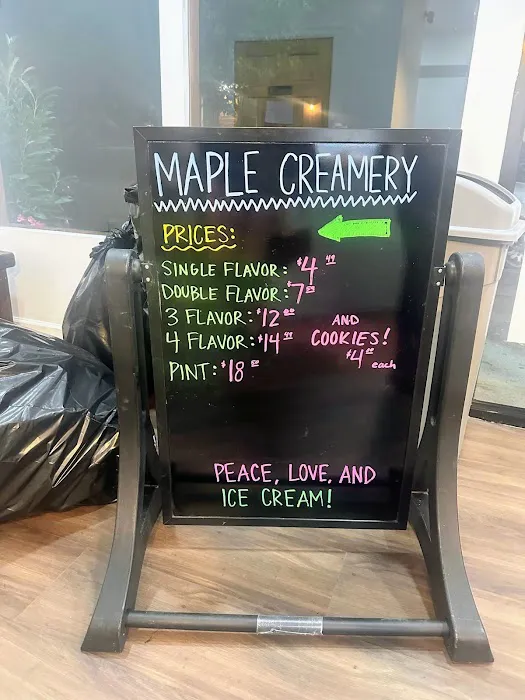 MAPLE CREAMERY
PRICES:
SINGLE FLAVOR: $4
DOUBLE FLAVOR: $7
3 FLAVOR: $12
4 FLAVOR: $14
PINT: $18
AND
COOKIES!
$4 each
PEACE, LOVE, AND
ICE CREAM!